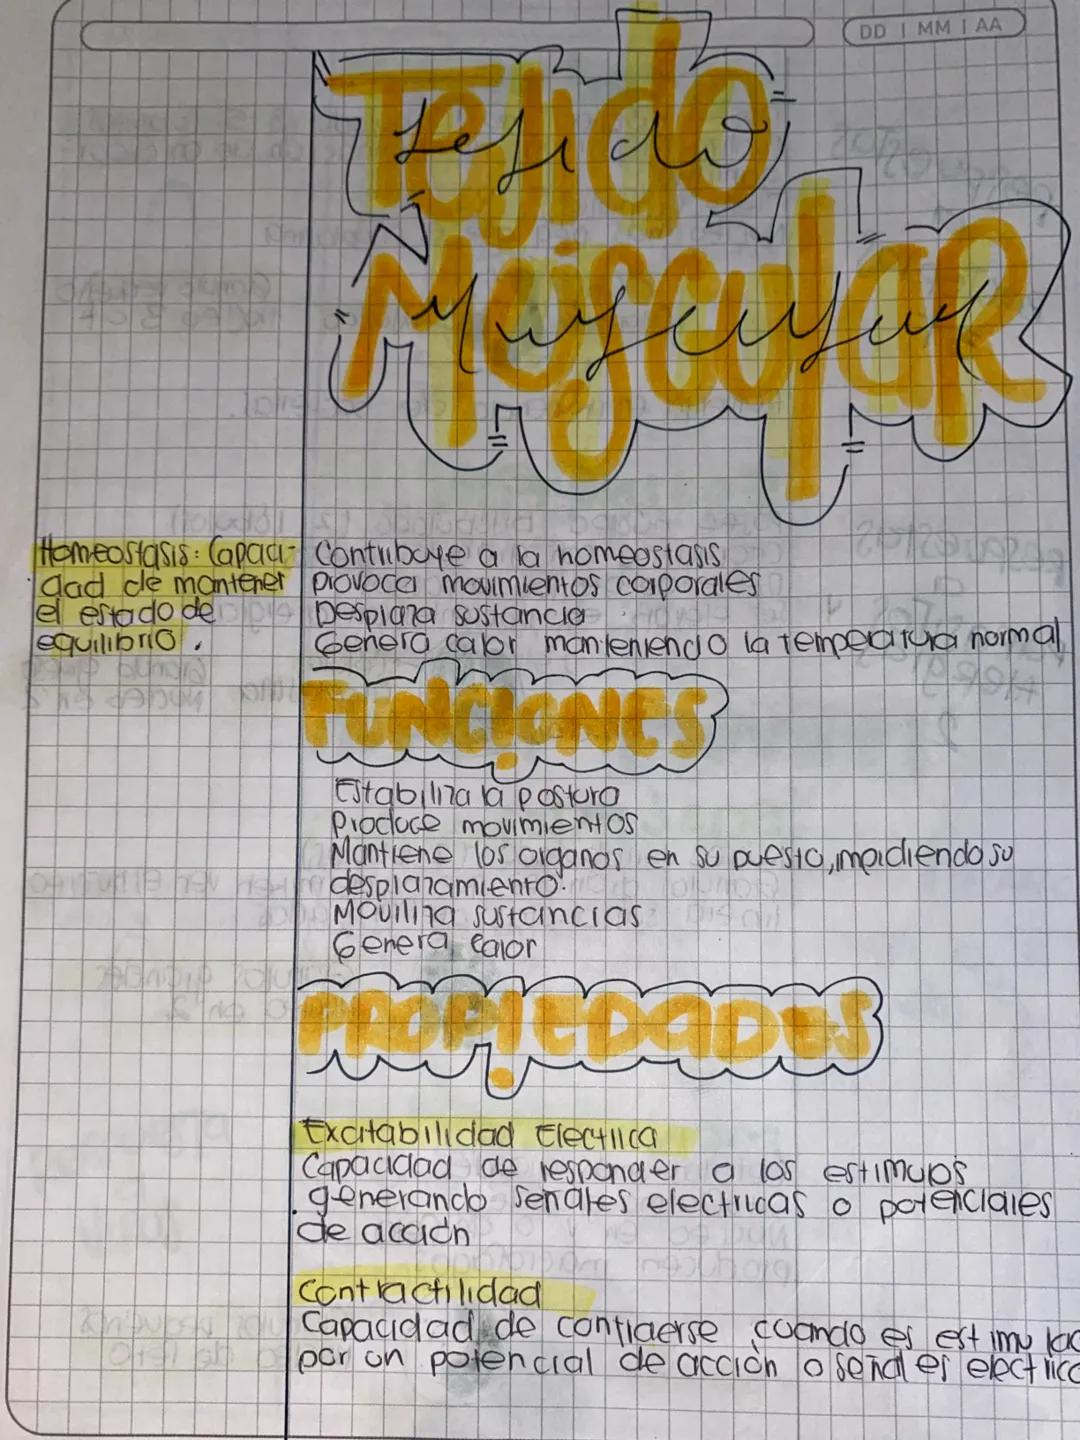 DD | MM | AA
Tejido
Muscular
Homeostasis: Capaci-
dad de mantener
el estado de
equilibrio.
Contribuye a la homeostasis
Provoca movimientos corporales
Desplaza sustancia
Genera calor manteniendo la temperatura normal
FUNCIONES
Estabiliza la postura
Produce movimientos
Mantiene los organos en su puesto, impidiendo su
desplazamiento.
Moviliza sustancias
Genera calor
PROPIEDADES
Excitabilidad Electrica
Capacidad de responder a los estimulos
generando señales electricas o potenciales
de acción
Contractilidad
Capacidad de contraerse cuando es estimulad
por un potencial de acción o señales electrica